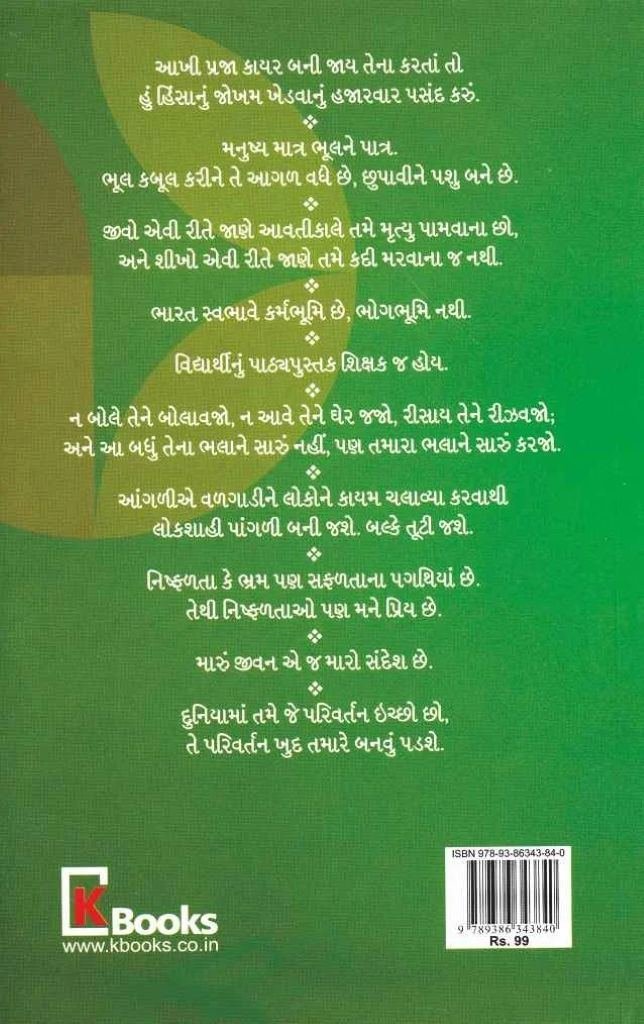 આખી પ્રજા કાયર બની જાય તેના કરતાં તો
હું હિંસાનું જોખમ ખેડવાનું હજારવાર પસંદ કરું.
મનુષ્ય માત્ર ભૂલને પાત્ર.
ભૂલ કબૂલ કરીને તે આગળ વધે છે, છુપાવીને પશુ બને છે.
જીવો એવી રીતે જાણે આવતીકાલે તમે મૃત્યુ પામવાના છો,
અને શીખો એવી રીતે જાણે તમે કદી મરવાના જ નથી.
ભારત સ્વભાવે કર્મભૂમિ છે, ભોગભૂમિ નથી.
વિદ્યાર્થીનું પાઠ્યપુસ્તક શિક્ષક જ હોય.
ન બોલે તેને બોલાવજો, ન આવે તેને ઘેર જજો, રીસાય તેને રીઝવજો;
અને આ બધું તેના ભલાને સારું નહીં, પણ તમારા ભલાને સારું કરજો.
આંગળીએ વળગાડીને લોકોને કાયમ ચલાવ્યા કરવાથી
લોકશાહી પાંગળી બની જશે. બલ્કે તૂટી જશે.
નિષ્ફળતા કે ભ્રમ પણ સફળતાના પગથિયાં છે.
તેથી નિષ્ફળતાઓ પણ મને પ્રિય છે.
મારું જીવન એ જ મારો સંદેશ છે.
દુનિયામાં તમે જે પરિવર્તન ઇચ્છો છો,
તે પરિવર્તન ખુદ તમારે બનવું પડશે.
ISBN 978-93-86343-84-0
9 789386 343840
Rs. 99
K Books
www.kbooks.co.in